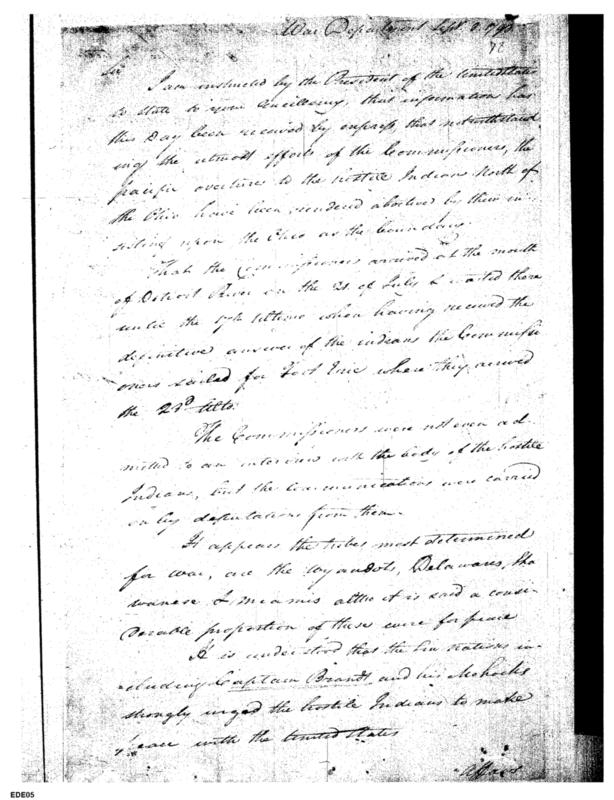 War Department Sept. 3. 1793
78
Sir
I am instructed by the President of the United States
to state to your Excellency, that information has
this Day been received by express, that notwithstand
ing the utmost efforts of the Commissioners, the
pacific overtures to the hostile Indians North of
the Ohio have been rendered abortive by their in
sisting upon the Ohio as the boundary.
That the Commissioners arrived at the mouth
of Detroit River on the 21 of July & waited there
until the 17th Ultimo when having received the
definitive answer of the indians the Commissi
oners sailed for Fort Erie where they arrived
the 23d Ulto.
The Commissioners were not even ad-
mitted to an interview with the body of the hostile
Indians, but the Communications were carried
on by deputations from them.
It appears the tribes most determined
for war, are the Wyandots, Delawares, Sha
wanese & Miamis altho it is said a consi-
derable proportion of these were for peace
It is understood that the Six nations in-
cluding Captain Brandt and his Mohocks
strongly urged the hostile Indians to make
peace with the United States
Affairs
EDE05